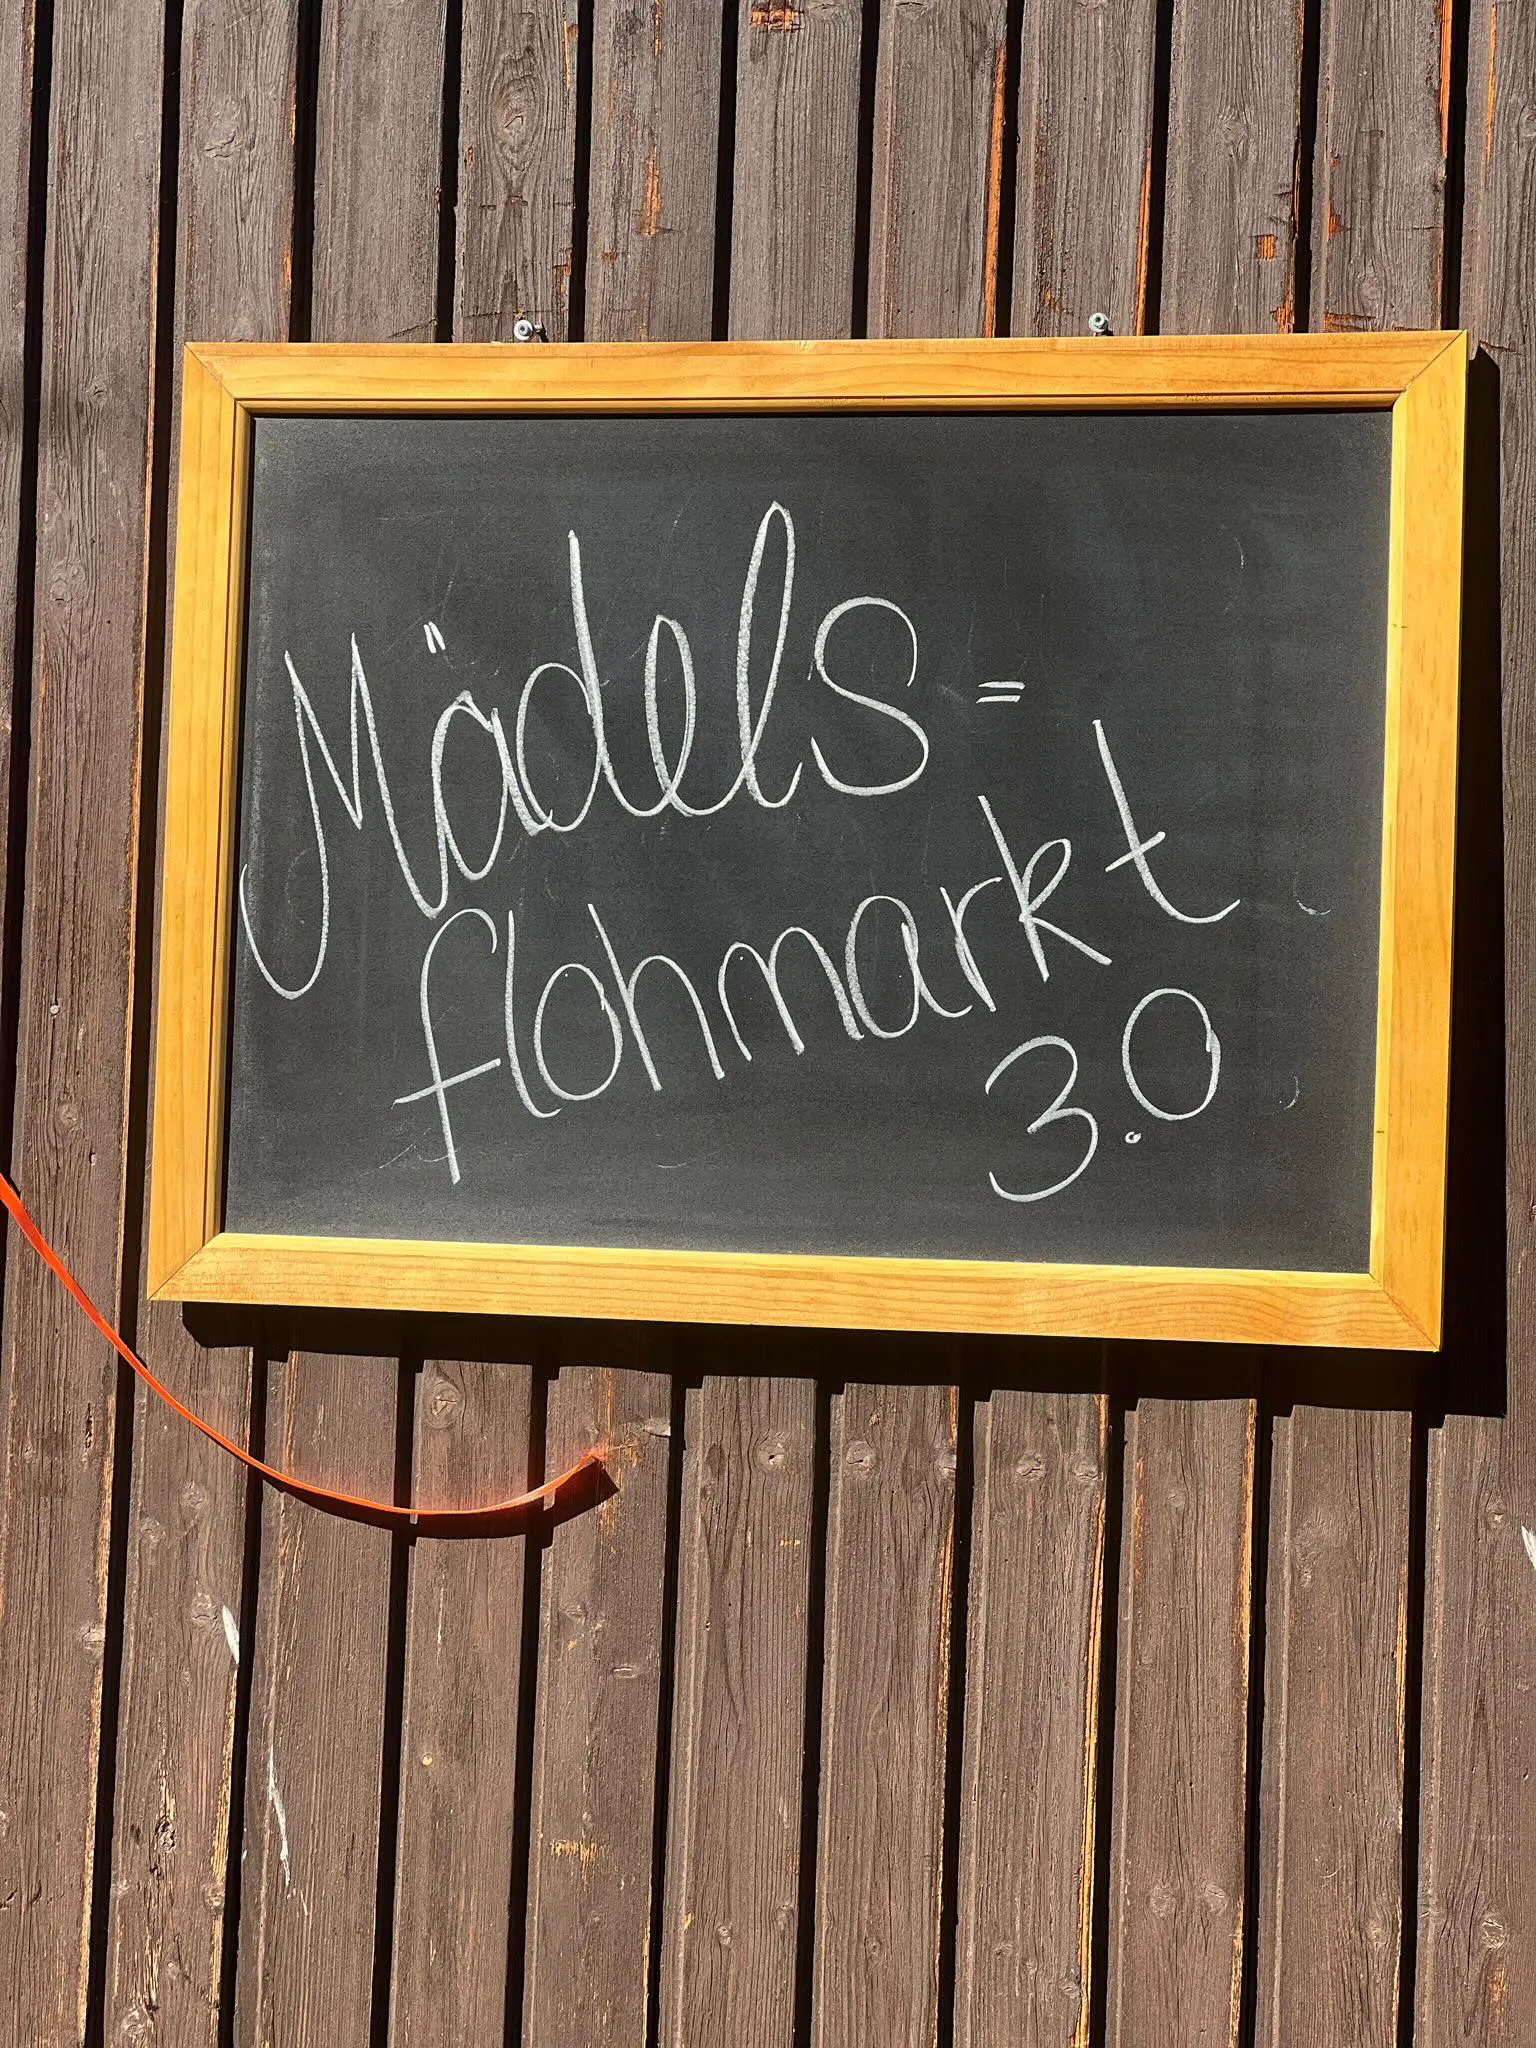 Mädels=
flohmarkt
3.0